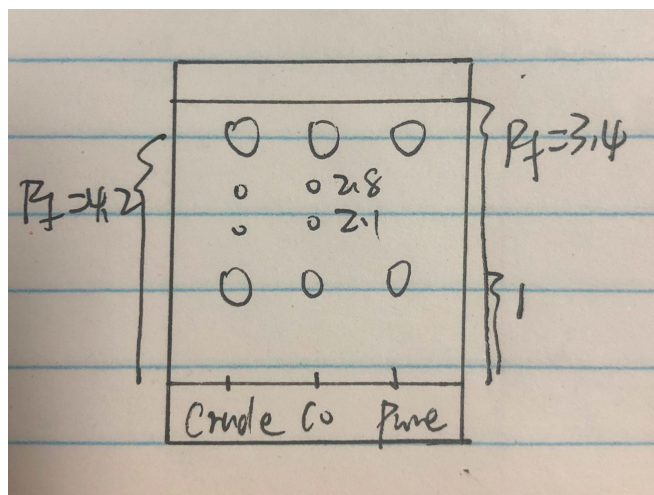 Rf=3.4
Rf=4.2
2.8
2.1
1
Crude Co Pure